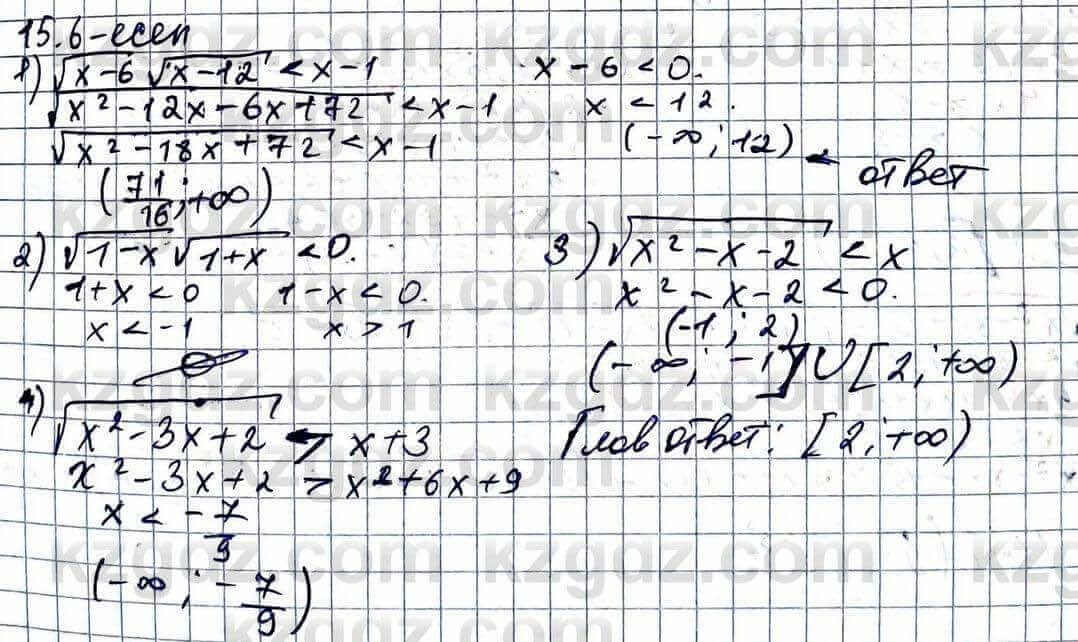 15.6-есеп
1) √x-6 √x-12 < x-1
√x²-12x-6x+72 < x-1
√x²-18x+72 < x-1
(71/16; +∞)
x-6<0.
x < 12.
(-∞; 12) ← ответ
2) √1-x √1+x < 0.
1+x<0 1-x<0.
x<-1 x>1
∅
3) √x²-x-2 < x
x²-x-2<0.
(-1; 2)
(-∞; -1] ∪ [2; +∞)
Глав ответ: [2; +∞)
4) √x²-3x+2 > x+3
x²-3x+2 > x²+6x+9
x < -7/9
(-∞; -7/9)
kzgdz.com